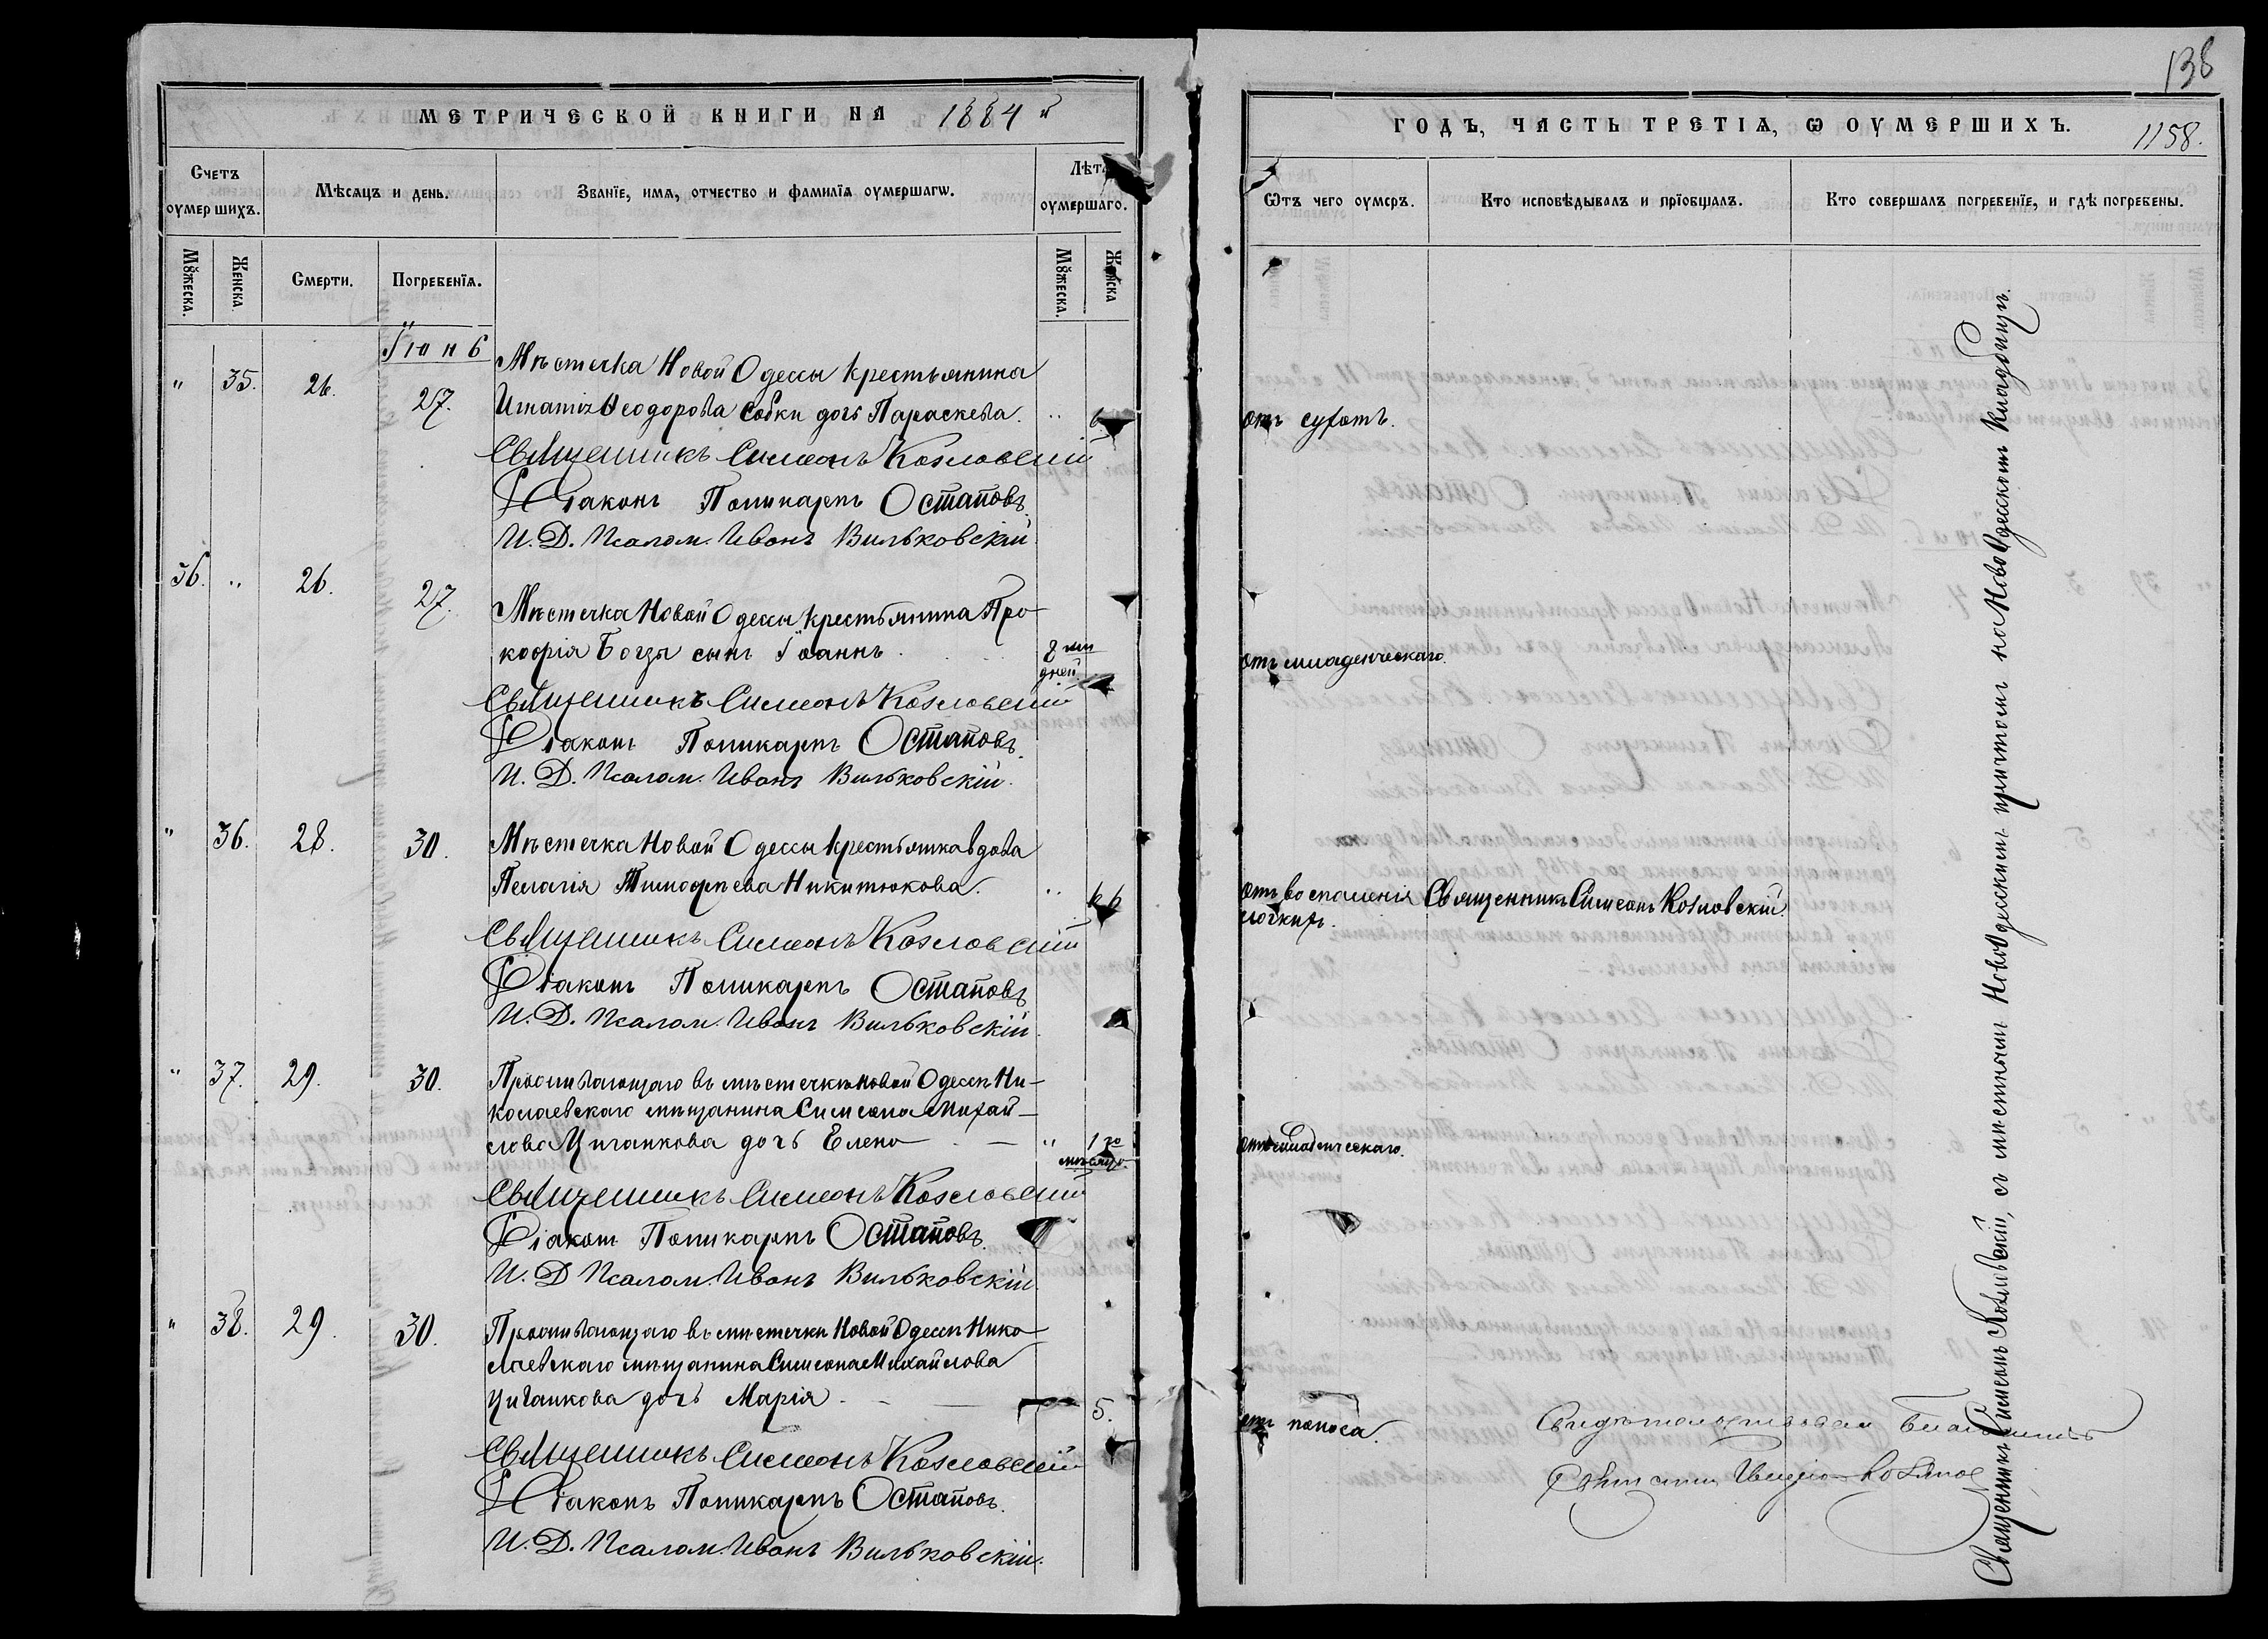 МЕТРИЧЕСКОЙ КНИГИ НА 1884 й
Счетъ оумершихъ.
Мѣсяцъ и день.
Званїе, имя, отчество и фамилїя оумершагѡ.
Лѣта оумершаго.
Мꙋжеска.
Женска.
Смерти.
Погребенїя.
Мꙋжеска.
Женска
Іюнь
" 35. 26. 27.
Мѣстечка Новой Одессы крестьянина
Игнатія Ѳеодорова Собки дочь Параскева. 6
Священникъ Симеонъ Козловскій
Діаконъ Поликарпъ Остаповъ.
И. Д. Псалом. Иванъ Вильковскій.
36. " 26. 27.
Мѣстечка Новой Одессы крестьянина Про-
кофія Богзы сынъ Іоаннъ. 8 ми
дней.
Священникъ Симеонъ Козловскій
Діаконъ Поликарпъ Остаповъ.
И. Д. Псалом. Иванъ Вильковскій.
" 36. 28. 30.
Мѣстечка Новой Одессы крестьянка вдова
Пелагія Тимофѣева Никитюкова. 66
Священникъ Симеонъ Козловскій
Діаконъ Поликарпъ Остаповъ
И. Д. Псалом. Иванъ Вильковскій.
" 37. 29. 30.
Проживающаго въ мѣстечкѣ Новой Одессѣ Ни-
колаевскаго мѣщанина Симеона Михай-
лова Циганкова дочь Елена " 1 го
мѣсяца.
Священникъ Симеонъ Козловскій
Діаконъ Поликарпъ Остаповъ.
И. Д. Псалом. Иванъ Вильковскій.
" 38. 29. 30.
Проживающаго въ мѣстечкѣ Новой Одессѣ Нико-
лаевскаго мѣщанина Симеона Михайлова
Циганкова дочь Марія. 5.
Священникъ Симеонъ Козловскій
Діаконъ Поликарпъ Остаповъ.
И. Д. Псалом. Иванъ Вильковскій.
138
ГОДЪ, ЧАСТЬ ТРЕТІЯ, Ѡ ОУМЕРШИХЪ.
1158.
Ѿтъ чего оумеръ.
Кто исповѣдывалъ и прїобщалъ.
Кто совершалъ погребенїе, и гдѣ погребены.
отъ сухотъ.
отъ младенческаго.
отъ воспаленія Священникъ Симеонъ Козловскій.
легкихъ.
отъ младенческаго.
отъ поноса.
Священникъ Симеонъ Козловскій, съ мѣстнымъ Новоодесскимъ причтомъ на Новоодесскомъ кладбищѣ.